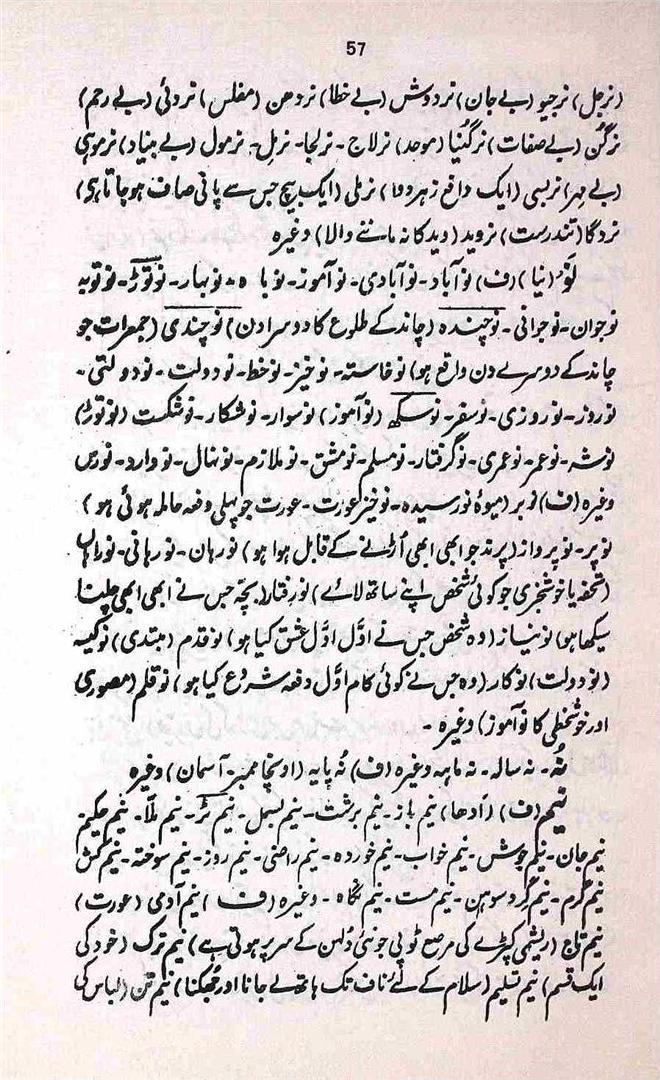 57
(نرجل) نرجیو (بے جان) نردوش (بے خطا) نردھن (مفلس) نردئی (بے رحم)
نرگُن (بے صفات) نرگُنیا (موحد) نرلاج - نرلجا - نرمل - نرمول (بے بنیاد) نرموہی
(بے مہر) نربسی (ایک دافع زہر دوا) نرملی (ایک بیج جس سے پانی صاف ہو جاتا ہی)
نردگا (تندرست) نروید (وید کا نہ ماننے والا) وغیرہ
نَو (نیا) (ف) نوآباد - نوآبادی - نوآموز - نوباہ - نوبہار - نوتوڑ - نوتوبہ
نوجوان - نوجوانی - نوچندہ (چاند کے طلوع کا دوسرا دن) نوچندی (جمعرات جو
چاند کے دوسرے دن واقع ہو) نوخاستہ - نوخیز - نوخط - نودولت - نودولتی -
نوروز - نوروزی - نوسفر - نوسکھ (نوآموز) نوسوار - نوشکار - نوشکست (نوتوڑ)
نوشہ - نوعمر - نوعمری - نوگرفتار - نومسلم - نومشق - نوملازم - نونہال - نووارد - نورس
وغیرہ (ف) نوبر (میوۂ نورسیدہ - نوخیز عورت - عورت جو پہلی دفعہ حاملہ ہوئی ہو)
نوپر - نوپرواز (پرند جو ابھی ابھی اُڑنے کے قابل ہوا ہو) نورہان - نورہانی - نوراہاں
(تحفہ یا خوشخبری جو کوئی شخص اپنے ساتھ لائے) نورفتار (بچّہ جس نے ابھی ابھی چلنا
سیکھا ہو) نونیاز (وہ شخص جس نے اوّل اوّل عشق کیا ہو) نوقدم (مبتدی) نوکیسہ
(نودولت) نوکار (وہ جس نے کوئی کام اوّل دفعہ شروع کیا ہو) نوقلم (مصوری
اور خوشخطی کا نوآموز) وغیرہ -
نُہ - نہ سالہ - نہ ماہہ وغیرہ (ف) نُہ پایہ (اونچا ممبر - آسمان) وغیرہ
نیم (ف) (آدھا) نیم باز - نیم برشت - نیم بسمل - نیم تر - نیم ملّا - نیم حکیم -
نیم جان - نیم جوش - نیم خواب - نیم خوردہ - نیم راضی - نیم روز - نیم سوختہ - نیم کش
نیم گرم - نیم گرد سوہن - نیم مست - نیم نگاہ - وغیرہ (ف) نیم آدمی (عورت)
نیم تاج (ریشمی کپڑے کی مرصع ٹوپی جو نئی دُلہن کے سر پر ہوتی ہے) نیم ترک (خود کی
ایک قسم) نیم تسلیم (سلام کے لئے ناف تک ہاتھ لے جانا اور جُھکنا) نیم تن (لباس کی